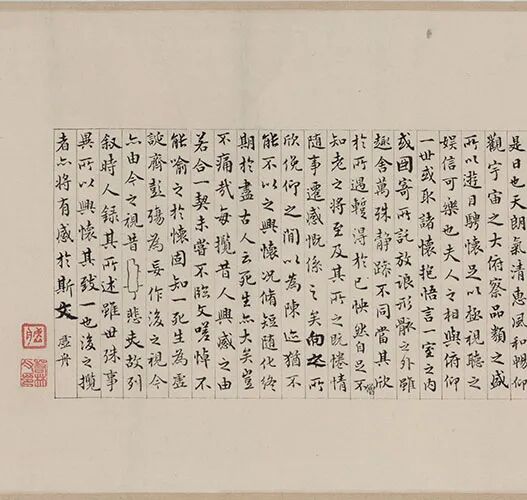 是日也天朗氣清惠風和暢仰
觀宇宙之大俯察品類之盛
所以遊目騁懷足以極視聽之
娛信可樂也夫人之相與俯仰
一世或取諸懷抱悟言一室之內
或因寄所託放浪形骸之外雖
趣舍萬殊靜躁不同當其欣
於所遇蹔得於己怏然自足不
知老之將至及其所之既惓情
隨事遷感慨係之矣向之所
欣俛仰之間以為陳迹猶不
能不以之興懷況脩短隨化終
期於盡古人云死生亦大矣豈
不痛哉每攬昔人興感之由
若合一契未嘗不臨文嗟悼不
能喻之於懷固知一死生為虛
誕齊彭殤為妄作後之視今
亦由今之視昔悲夫故列
敘時人錄其所述雖世殊事
異所以興懷其致一也後之攬
者亦將有感於斯文 盛丹